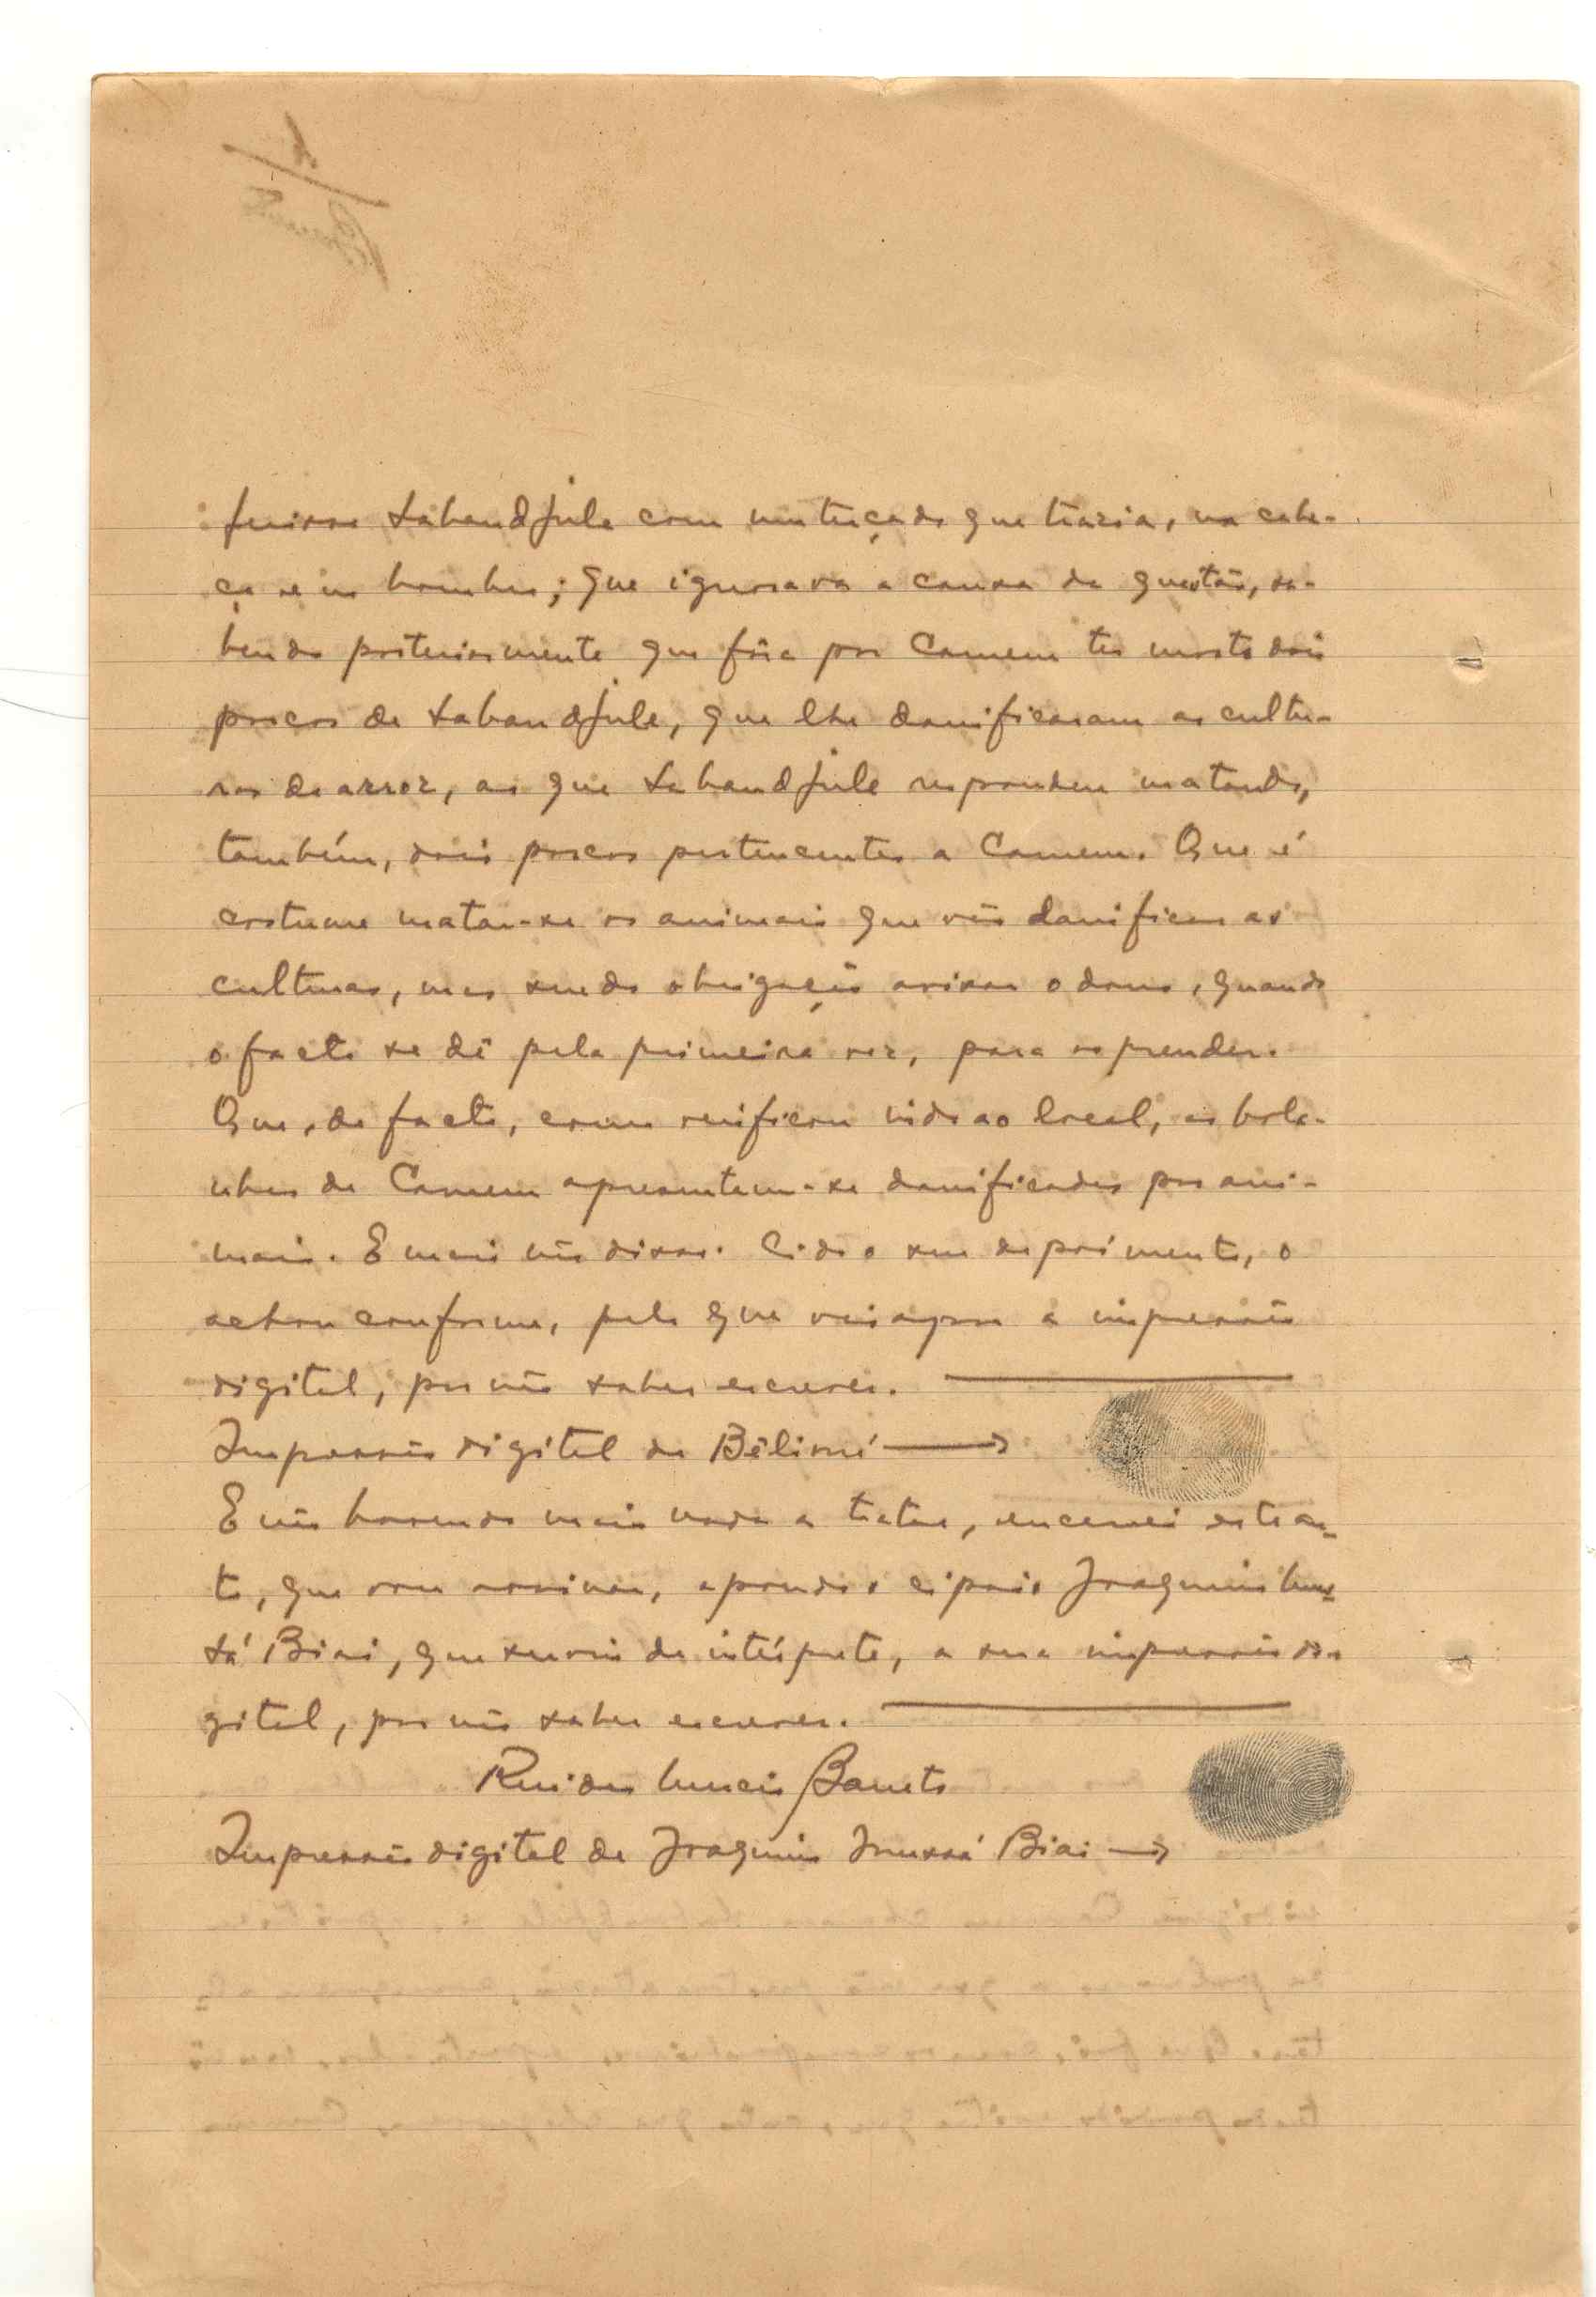 ferisse Sabandjule com um terçado que trazia, na cabe-
ça e no hombro; que ignorava a causa da questão, sa-
bendo posteriormente que fôra por Camem ter morto dois
porcos de Sabandjule, que lhe danificaram as cultu-
ras de arroz, ao que Sabandjule respondeu matando,
também, dois porcos pertencentes a Camem. Que é
costume matar-se os animais que vão danificar as
culturas, mas sendo obrigação avisar o dono, quando
o facto se dê pela primeira vez, para os prender.
Que, de facto, como verificou indo ao local, as bola-
nhas de Camem apresentam-se danificadas por ani-
mais. E mais não disse. Lido o seu depoimento, o
achou conforme, pelo que vai apor a impressão
digital, por não saber escrever.
Impressão digital de Bêlimé
E não havendo mais nada a tratar, encerrei este au-
to, que vou assinar, apondo o cipaio Joaquim Inus-
sá Biai, que serviu de intérprete, a sua impressão di-
gital, por não saber escrever.
Rui dos Barreto
Impressão digital de Joaquim Inussá Biai